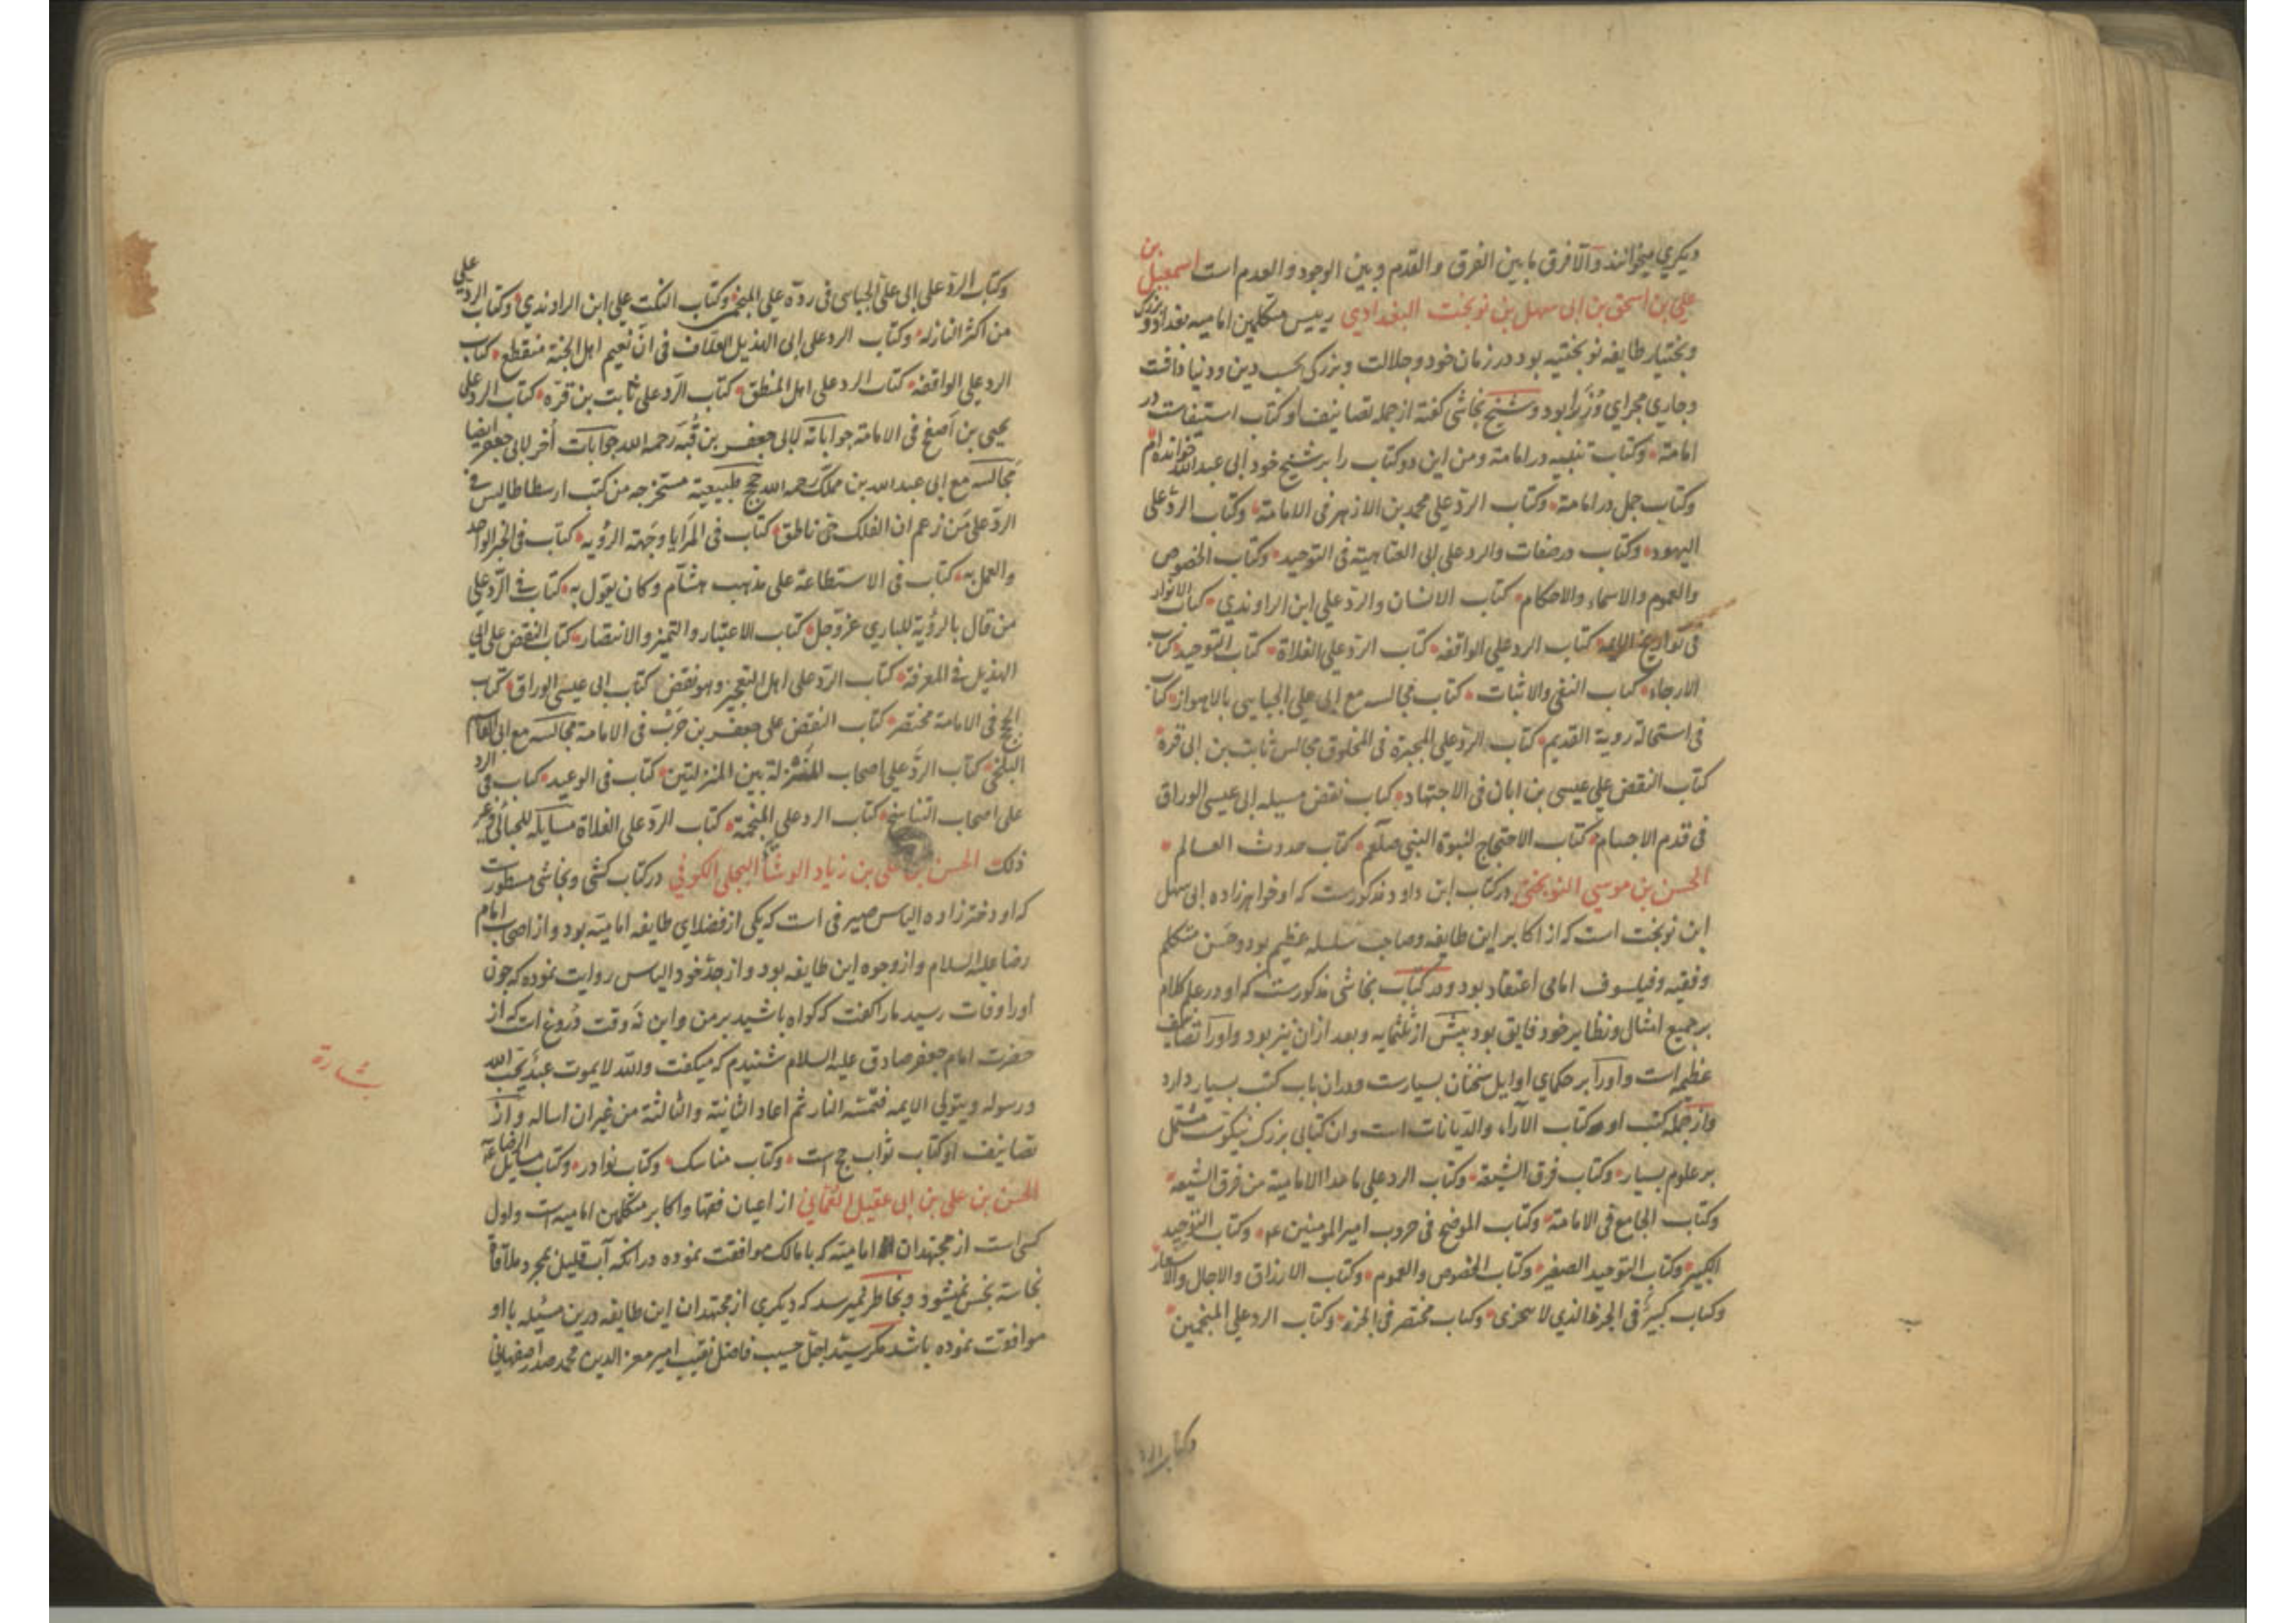 دیکری میخوانند والا فرق ما بین الفرق والقدم و بین الوجود والعدم است اسمعیل بن
علی بن اسحق بن ابی سهل بن نوبخت البغدادی رییس متکلمین امامیه بغداد و بزرک
و بختیار طایفه نوبختیه بود در زمان خود و جلالت و بزرکی بحسب دین و دنیا داشت
و جاری مجرای وُزَرا بود و شیخ نجاشی کفته از جمله تصانیف او کتاب استیفاست در
امامة و کتاب تنبیه در امامة و من این دو کتاب را بر شیخ خود ابی عبدالله خوانده‌ام
وکتاب جمل در امامة وکتاب الرد علی محمد بن الازهر فی الامامة وکتاب الرد علی
الیهود وکتاب در صفات والرد علی ابی العتاهیة فی التوحید وکتاب الخصوص
والعموم والاسماء والاحکام کتاب الانسان والرد علی ابن الراوندی کتاب الانوار
فی تواریخ الایمه کتاب الرد علی الواقفه کتاب الرد علی الغلاة کتاب التوحید کتاب
الارجاء کتاب النفی والاثبات کتاب مجالسه مع ابی علی الجبایی بالاهواز کتاب
فی استحالة رویة القدیم کتاب الرد علی المجبرة فی المخلوق مجالس ثابت بن ابی قرة
کتاب النقض علی عیسی بن ابان فی الاجتهاد کتاب نقض مسیله ابی عیسی الوراق
فی قدم الاجسام کتاب الاحتجاج لنبوة النبی صلعم کتاب حدوث العالم
الحسن بن موسی النوبختی در کتاب ابن داود مذکورست که او خواهرزاده ابی سهل
ابن نوبخت است که از اکابر این طایفه و صاحب سلسله عظیم بود و حَسَن متکلم
و فقیه و فیلسوف امامی اعتقاد بود و در کتاب نجاشی مذکورست که او در علم کلام
بر جمیع امثال و نظایر خود فایق بود پیش از ثلثمایه و بعد از ان نیز بود و او را تصانیف
عظیمه است و او را بر حکمای اوایل سخنان بسیارست و در ان باب کتب بسیار دارد
و از جمله کتب او کتاب الآراء والدیانات است و ان کتابی بزرک نیکوست مشتمل
بر علوم بسیار وکتاب فرق الشیعة وکتاب الرد علی ما عدا الامامیة من فرق الشیعه
وکتاب الجامع فی الامامة وکتاب الموضح فی حروب امیر المومنین ع وکتاب التوحید
الکبیر وکتاب التوحید الصغیر وکتاب الخصوص والعموم وکتاب الارزاق والاجال والاسعار
وکتاب کبیر فی الجزء الذی لا یتجزی وکتاب مختصر فی الجزء وکتاب الرد علی المنجمین
وکتاب الرد
وکتاب الرد علی ابی علی الجبایی فی رده علی المنجمین وکتاب النکت علی ابن الراوندی وکتاب الرد علی
من اکثر المنازله وکتاب الرد علی ابی الهذیل العلاف فی انّ نعیم اهل الجنة منقطع کتاب
الرد علی الواقفه کتاب الرد علی اهل المنطق کتاب الرد علی ثابت بن قرّه کتاب الرد علی
یحیی بن اصفح فی الامامة جواباته لابی جعفر بن قُبَه رحمه الله جوابات اُخر لابی جعفر ایضا
مجالسه مع ابی عبدالله بن مملک رحمه الله حجج طبیعیة مستخرجه من کتب ارسطاطالیس فی
الرد علی مَن زعم ان الفلک حیّ ناطق کتاب فی المَرایا وجهة الرؤیه کتاب فی الخبر الواحد
والعمل به کتاب فی الاستطاعة علی مذهب هشام وکان یقول به کتاب فی الرد علی
من قال بالرؤیة للباری عزوجل کتاب الاعتبار والتمیز والانتصار کتاب النقض علی ابی
الهذیل فی المعرفة کتاب الرد علی اهل التعجیز وهو نقض کتاب ابی عیسی الوراق کتاب
الحجج فی الامامة مختصر کتاب النقض علی جعفر بن حَرْب فی الامامة مجالسه مع ابی القاسم
البلخی کتاب الرد علی اصحاب المنزلة بین المنزلتین کتاب فی الوعید کتاب فی الرد
علی اصحاب التناسخ کتاب الرد علی المنجمة کتاب الرد علی الغلاة مسایله للجبائی وغیر
ذلک الحسن بن علی بن زیاد الوشّا البجلی الکوفی در کتاب کشی و نجاشی مسطورست
که او دخترزاده الیاس صیرفی است که یکی از فضلای طایفه امامیّه بود و از اصحاب امام
رضا علیه السلام و از وجوه این طایفه بود و از جدّ خود الیاس روایت نموده که چون
او را وفات رسید ما را کفت که کواه باشید بر من و این نه وقت دروغ است که از
حضرت امام جعفر صادق علیه السلام شنیدم که میکفت والله لا یموت عبدٌ یحب الله
ورسوله ویتولی الایمه فتمسّه النار ثم اعاد الثانیة والثالثة من غیر ان اساله و از
تصانیف او کتاب ثواب حج است وکتاب مناسک وکتاب نوادر وکتاب مسایل الرضا ع
الحسن بن علی بن ابی عقیل العُمّانی از اعیان فقها و اکابر متکلمین امامیه است و اول
کسی است از مجتهدان امامیّه که با مالک موافقت نموده در انکه آب قلیل بمجرد ملاقات
نجاسة نجس نمیشود و بخاطر نمیرسد که دیکری از مجتهدان این طایفه درین مسئله با او
موافقت نموده باشد مکر سیّد اجلّ حسیب فاضل نقیب امیر معز الدین محمد صدر اصفهانی
بشارة